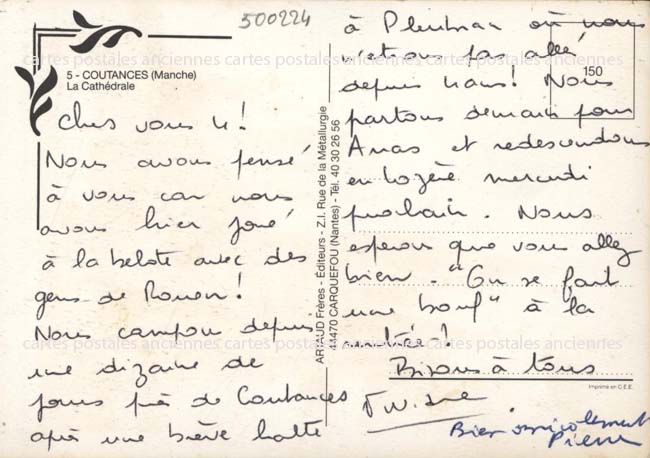 500224
5 - COUTANCES (Manche)
La Cathédrale
150
Chers vous 4!
Nous avons pensé
à vous car nous
avons hier joué
à la belote avec des
gens de Rouen!
Nous campons depuis
une dizaine de
jours près de Coutances
après une brève halte
à où nous
n'étions pas allé
depuis ! Nous
partons demain pour
et redescendons
en Lozère mercredi
prochain. Nous
esperons que vous allez
bien. "On se fait
une bouf" à la
rentrée!
Bisous à tous
Bien amicalement
Pierre
ARTAUD Frères - Editeurs - Z.I. Rue de la Métallurgie
44470 CARQUEFOU (Nantes) - Tél. 40 30 26 56
Imprimé en C.E.E.
cartes postales anciennes cartes postales anciennes cartes postales anciennes
cartes postales anciennes cartes postales anciennes cartes postales anciennes